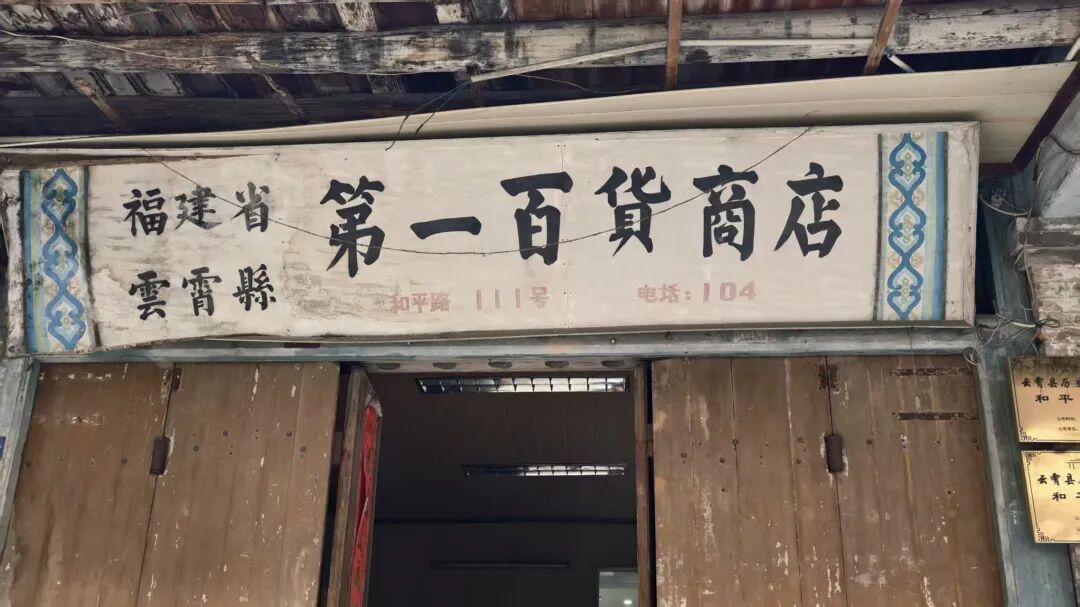 福建省
雲霄縣
第一百货商店
和平路 111号
电话:104
云霄县历
和平
云霄县
和